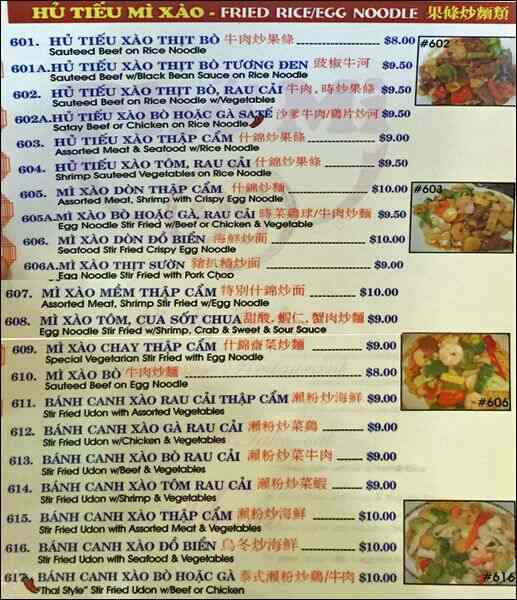 HỦ TIẾU MÌ XÀO - FRIED RICE/EGG NOODLE 果條炒麵類
601. HỦ TIẾU XÀO THỊT BÒ 牛肉炒果條 $8.00
Sauteed Beef on Rice Noodle
#602
601A. HỦ TIẾU XÀO THỊT BÒ TƯƠNG ĐEN 豉椒牛河 $9.50
Sauteed Beef w/Black Bean Sauce on Rice Noodle
602. HỦ TIẾU XÀO THỊT BÒ, RAU CẢI 牛肉.時炒果條 $9.50
Sauteed Beef on Rice Noodle w/Vegetables
602A. HỦ TIẾU XÀO BÒ HOẶC GÀ SATẾ 沙爹牛肉/鷄片炒河 $9.50
Satay Beef or Chicken on Rice Noodle
603. HỦ TIẾU XÀO THẬP CẨM 什錦炒果條 $9.00
Assorted Meat & Seafood w/Rice Noodle
604. HỦ TIẾU XÀO TÔM, RAU CẢI 什錦炒果條 $9.50
Shrimp Sauteed Vegetables on Rice Noodle
605. MÌ XÀO DÒN THẬP CẨM 什錦炒麵 $10.00
Assorted Meat, Shrimp with Crispy Egg Noodle
#603
605A. MÌ XÀO BÒ HOẶC GÀ, RAU CẢI 時菜鷄球/牛肉炒麵 $9.50
Egg Noodle Stir Fried w/Beef or Chicken & Vegetable
606. MÌ XÀO DÒN ĐỒ BIỂN 海鮮炒面 $10.00
Seafood Stir Fried Crispy Egg Noodle
606A. MÌ XÀO THỊT SƯỜN 豬扒炒面 $9.00
Egg Noodle Stir Fried with Pork Chop
607. MÌ XÀO MỀM THẬP CẨM 特別什錦炒面 $10.00
Assorted Meat, Shrimp Stir Fried w/Egg Noodle
608. MÌ XÀO TÔM, CUA SỐT CHUA 甜酸.蝦仁.蟹肉炒麵 $9.00
Egg Noodle Stir Fried w/Shrimp, Crab & Sweet & Sour Sauce
609. MÌ XÀO CHAY THẬP CẨM 什錦齋菜炒麵 $9.00
Special Vegetarian Stir Fried with Egg Noodle
610. MÌ XÀO BÒ 牛肉炒麵 $8.00
Sauteed Beef on Egg Noodle
611. BÁNH CANH XÀO RAU CẢI THẬP CẨM 瀨粉炒海鮮 $9.00
Stir Fried Udon with Assorted Vegetables
#606
612. BÁNH CANH XÀO GÀ RAU CẢI 瀨粉炒菜鷄 $9.00
Stir Fried Udon w/Chicken & Vegetable
613. BÁNH CANH XÀO BÒ RAU CẢI 瀨粉炒菜牛肉 $9.00
Stir Fried Udon w/Beef & Vegetables
614. BÁNH CANH XÀO TÔM RAU CẢI 瀨粉炒菜蝦 $9.00
Stir Fried Udon w/Shrimp & Vegetables
615. BÁNH CANH XÀO THẬP CẨM 瀨粉炒海鮮 $10.00
Stir Fried Udon with Assorted Meat & Vegetables
616. BÁNH CANH XÀO ĐỒ BIỂN 烏冬炒海鮮 $10.00
Stir Fried Udon with Seafood & Vegetables
617. BÁNH CANH XÀO BÒ HOẶC GÀ 泰式瀨粉炒鷄/牛肉 $10.00
"Thai Style" Stir Fried Udon w/Beef or Chicken
#616